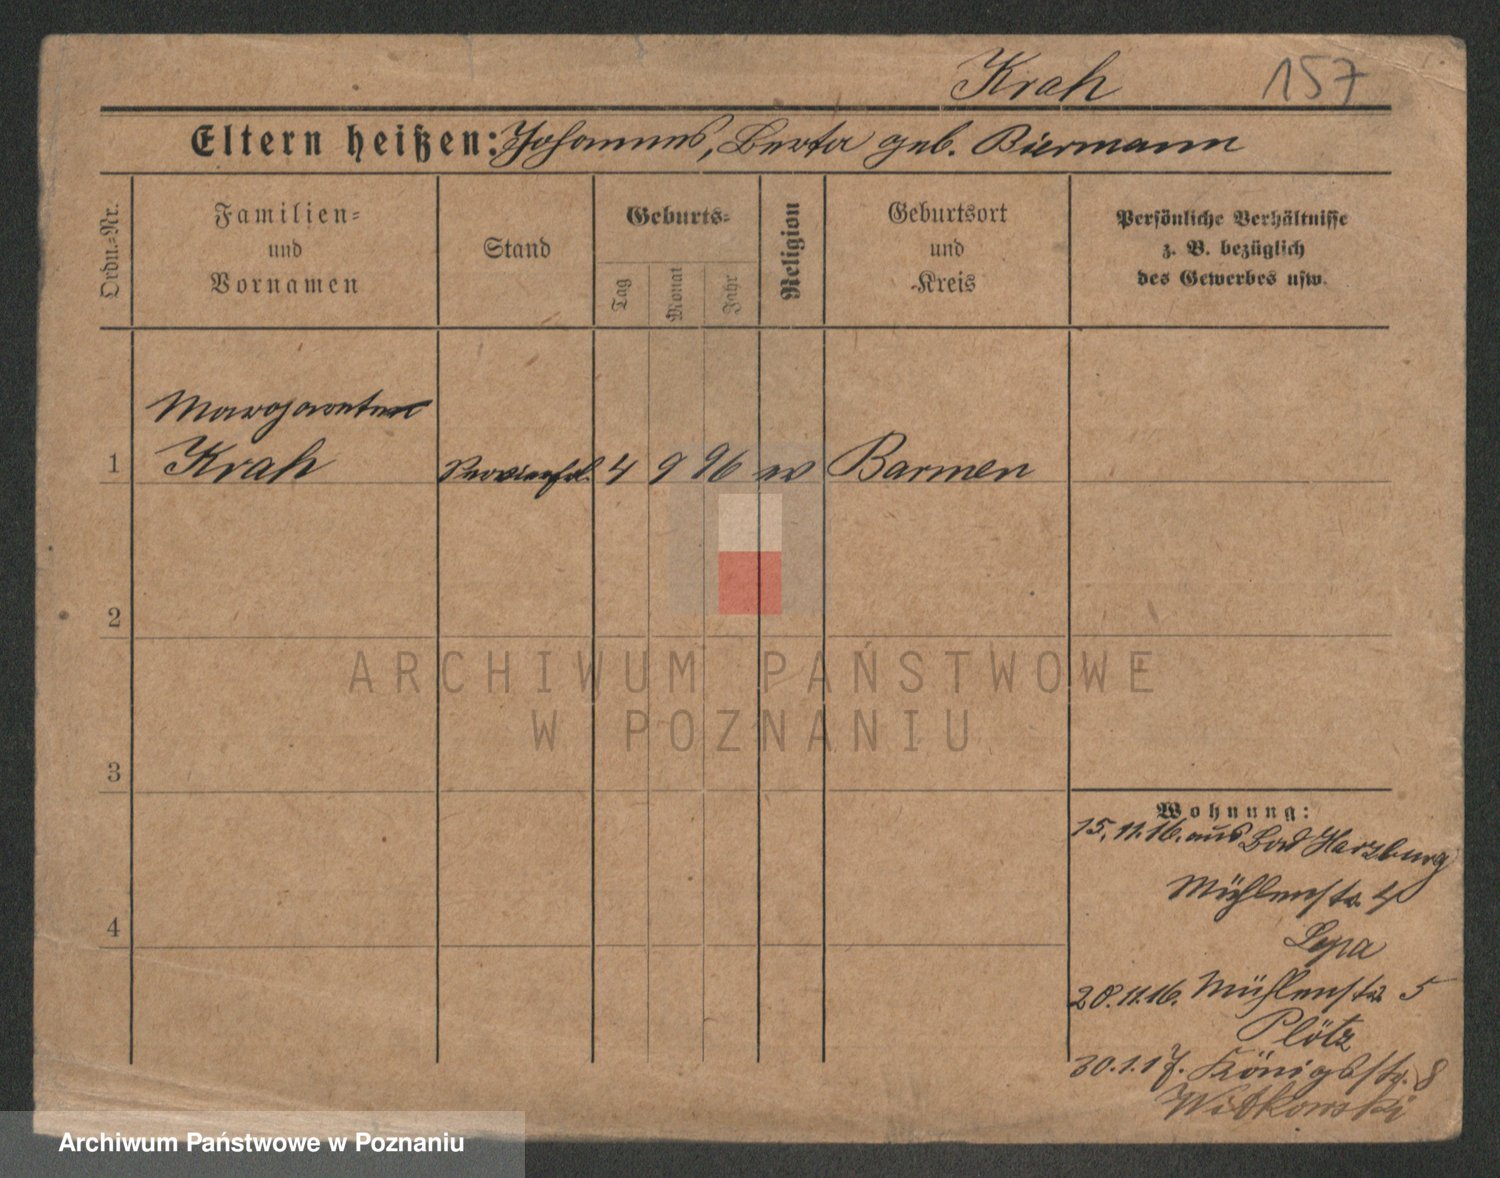 Krah 157
Eltern heißen: Johannes, Berta geb. Biermann
Ordn.-Nr.
Familien-
und
Vornamen
Stand
Geburts-
Tag
Monat
Jahr
Religion
Geburtsort
und
Kreis
Persönliche Verhältnisse
z. B. bezüglich
des Gewerbes usw.
Margarete
1 Krah 4 9 96 ev Barmen
2
3
4
Wohnung:
15.11.16. aus Bad Harzburg
Mühlenstr. 4
28.11.16. Mühlenstr. 5
Plötz
30.1.17. Königstr. 8
Witkowski
ARCHIWUM PAŃSTWOWE
W POZNANIU
Archiwum Państwowe w Poznaniu